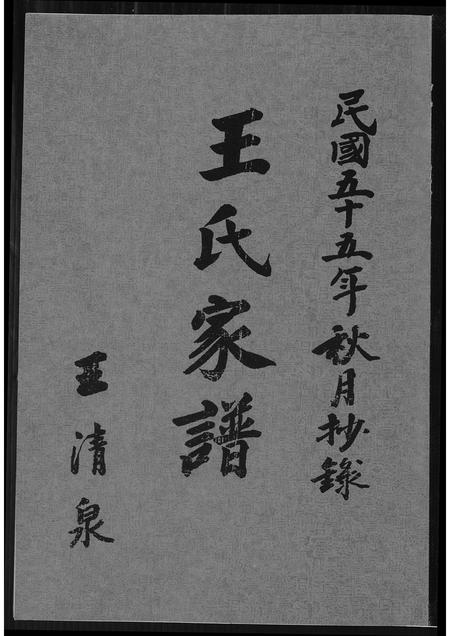 民國五十五年秋月抄錄
王氏家譜
王清泉